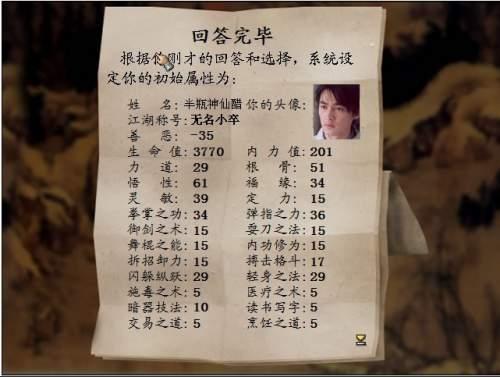 回答完毕
根据你刚才的回答和选择，系统设
定你的初始属性为：
姓 名：半瓶神仙醋 你的头像：
江湖称号：无名小卒
善 恶：-35
生 命 值：3770 内 力 值：201
力 道：29 根 骨：51
悟 性：61 福 缘：34
灵 敏：39 定 力：15
拳掌之功：34 弹指之力：36
御剑之术：15 耍刀之法：15
舞棍之能：15 内功修为：15
拆招卸力：15 搏击格斗：17
闪躲纵跃：29 轻身之法：29
施毒之术：5 医疗之术：5
暗器技法：10 读书写字：5
交易之道：5 烹饪之道：5